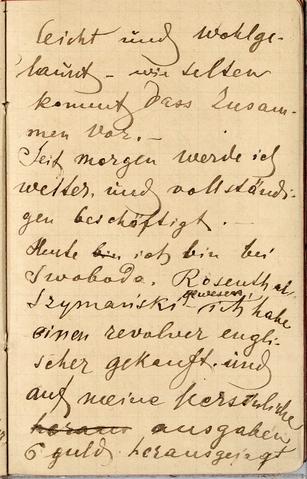 leicht und wohlge-
launt – wie selten
kommt dass Zusam-
men vor. –
Seit morgen werde ich
weiter, und vollständi-
gen beschöftigt. –
Heute bin ich bin bei
Swoboda, Rosenthal,
Szymański gewesen, ich habe
einen revolver engli-
scher gekauft und
auf meine
heraus ausgaben
6 guld. heraus